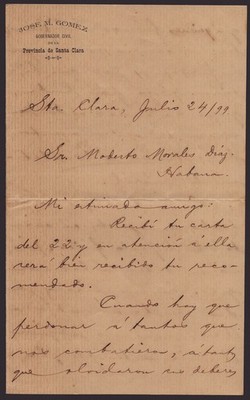 JOSE M. GOMEZ
GOBERNADOR CIVIL
DE LA
Provincia de Santa Clara
Sta. Clara, Julio 24/99
Sr. Roberto Morales Diaz.
Habana.
Mi estimado amigo:
Recibí tu carta
del 22 y en atención á ella
será bien recibido tu reco-
mendado.
Cuando hay que
perdonar á tantos que
nos combatieron, á tantos
que olvidaron sus deberes